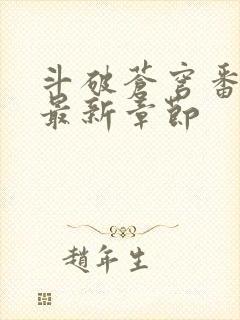 斗破苍穹番
最新章節
趙年生